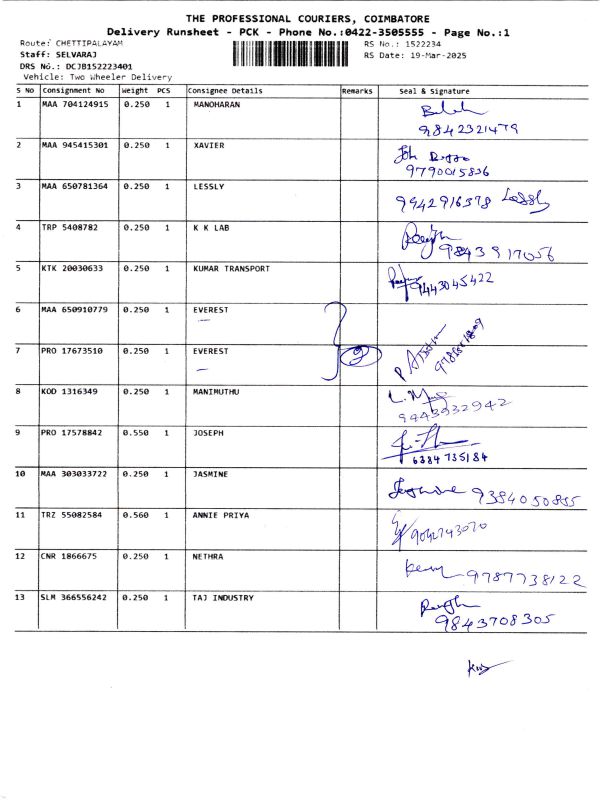 THE PROFESSIONAL COURIERS, COIMBATORE
Delivery Runsheet - PCK - Phone No.:0422-3505555 - Page No.:1
Route: CHETTIPALAYAM RS No.: 1522234
Staff: SELVARAJ RS Date: 19-Mar-2025
DRS No.: DCJB152223401
Vehicle: Two Wheeler Delivery
S No Consignment No Weight PCS Consignee Details Remarks Seal & Signature
1 MAA 704124915 0.250 1 MANOHARAN
9842321479
2 MAA 945415301 0.250 1 XAVIER
9790015836
3 MAA 650781364 0.250 1 LESSLY 9942916378 Lessly
4 TRP 5408782 0.250 1 K K LAB
9843917056
5 KTK 20030633 0.250 1 KUMAR TRANSPORT 9443045422
6 MAA 650910779 0.250 1 EVEREST
7 PRO 17673510 0.250 1 EVEREST 2
8 KOD 1316349 0.250 1 MANIMUTHU
9443932942
9 PRO 17578842 0.550 1 JOSEPH
6384735184
10 MAA 303033722 0.250 1 JASMINE Jasmine 9384050855
11 TRZ 55082584 0.560 1 ANNIE PRIYA 9042743070
12 CNR 1866675 0.250 1 NETHRA 9787738122
13 SLM 366556242 0.250 1 TAJ INDUSTRY
9843708305